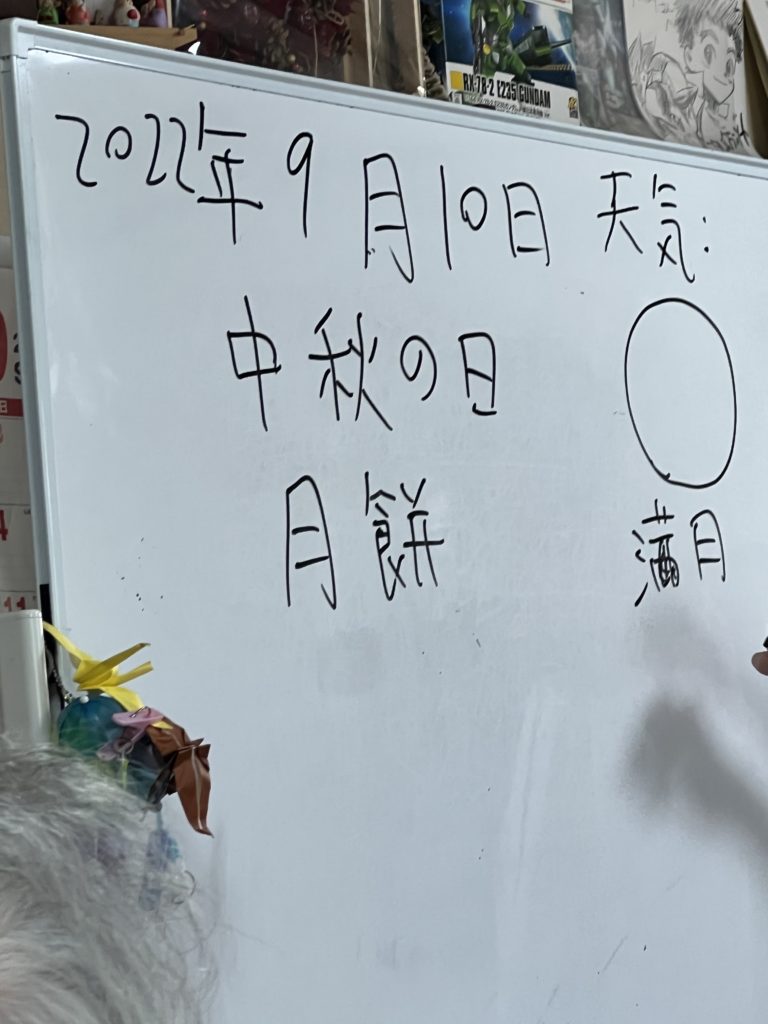 RX-78-2 E235 GUNDAM
2022年9月10日 天気:
中秋の日
月餅
満月